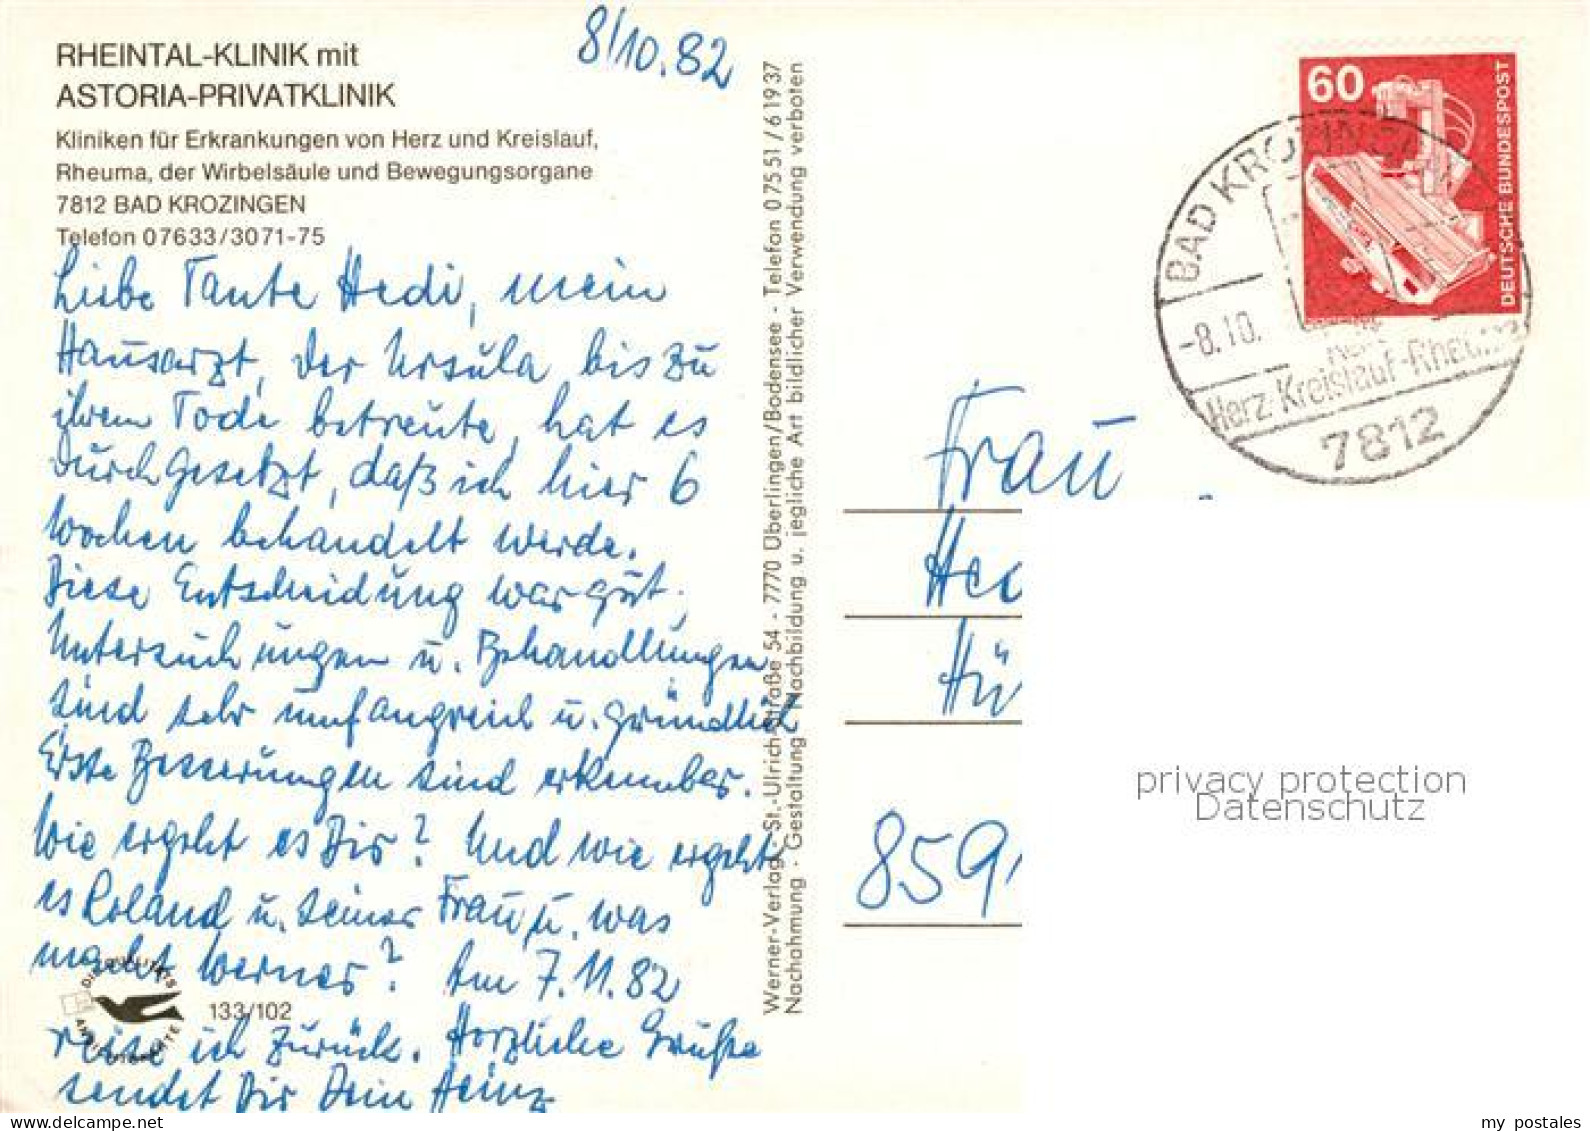 RHEINTAL-KLINIK mit
ASTORIA-PRIVATKLINIK
Kliniken für Erkrankungen von Herz und Kreislauf,
Rheuma, der Wirbelsäule und Bewegungsorgane
7812 BAD KROZINGEN
Telefon 07633/3071-75
8/10.82
Liebe Tante Hedi, mein
Hausarzt, der Ursula bis zu
ihrem Tode betreute, hat es
durchgesetzt, daß ich hier 6
Wochen behandelt werde.
Diese Entscheidung war gut.
Untersuchungen u. Behandlungen
sind sehr umfangreich u. gründlich
Erste Besserungen sind erkennbar.
Wie ergeht es Dir? Und wie ergeht
es Roland u. seiner Frau u. was
macht Werner? Am 7.11.82
reise ich zurück. Herzliche Grüße
sendet Dir Dein Heinz
DIE QUALITÄTS
ANSICHTSKARTE
133/102
Werner-Verlag · St.-Ulrich-Straße 54 - 7770 Überlingen/Bodensee - Telefon 07551/61937
Nachahmung · Gestaltung · Nachbildung u. jegliche Art bildlicher Verwendung verboten
60
DEUTSCHE BUNDESPOST
BAD KROZINGEN
-8.10.
Herz-Kreislauf-Rheuma
7812
Frau
Hed
Hü
859
privacy protection
Datenschutz
my postales